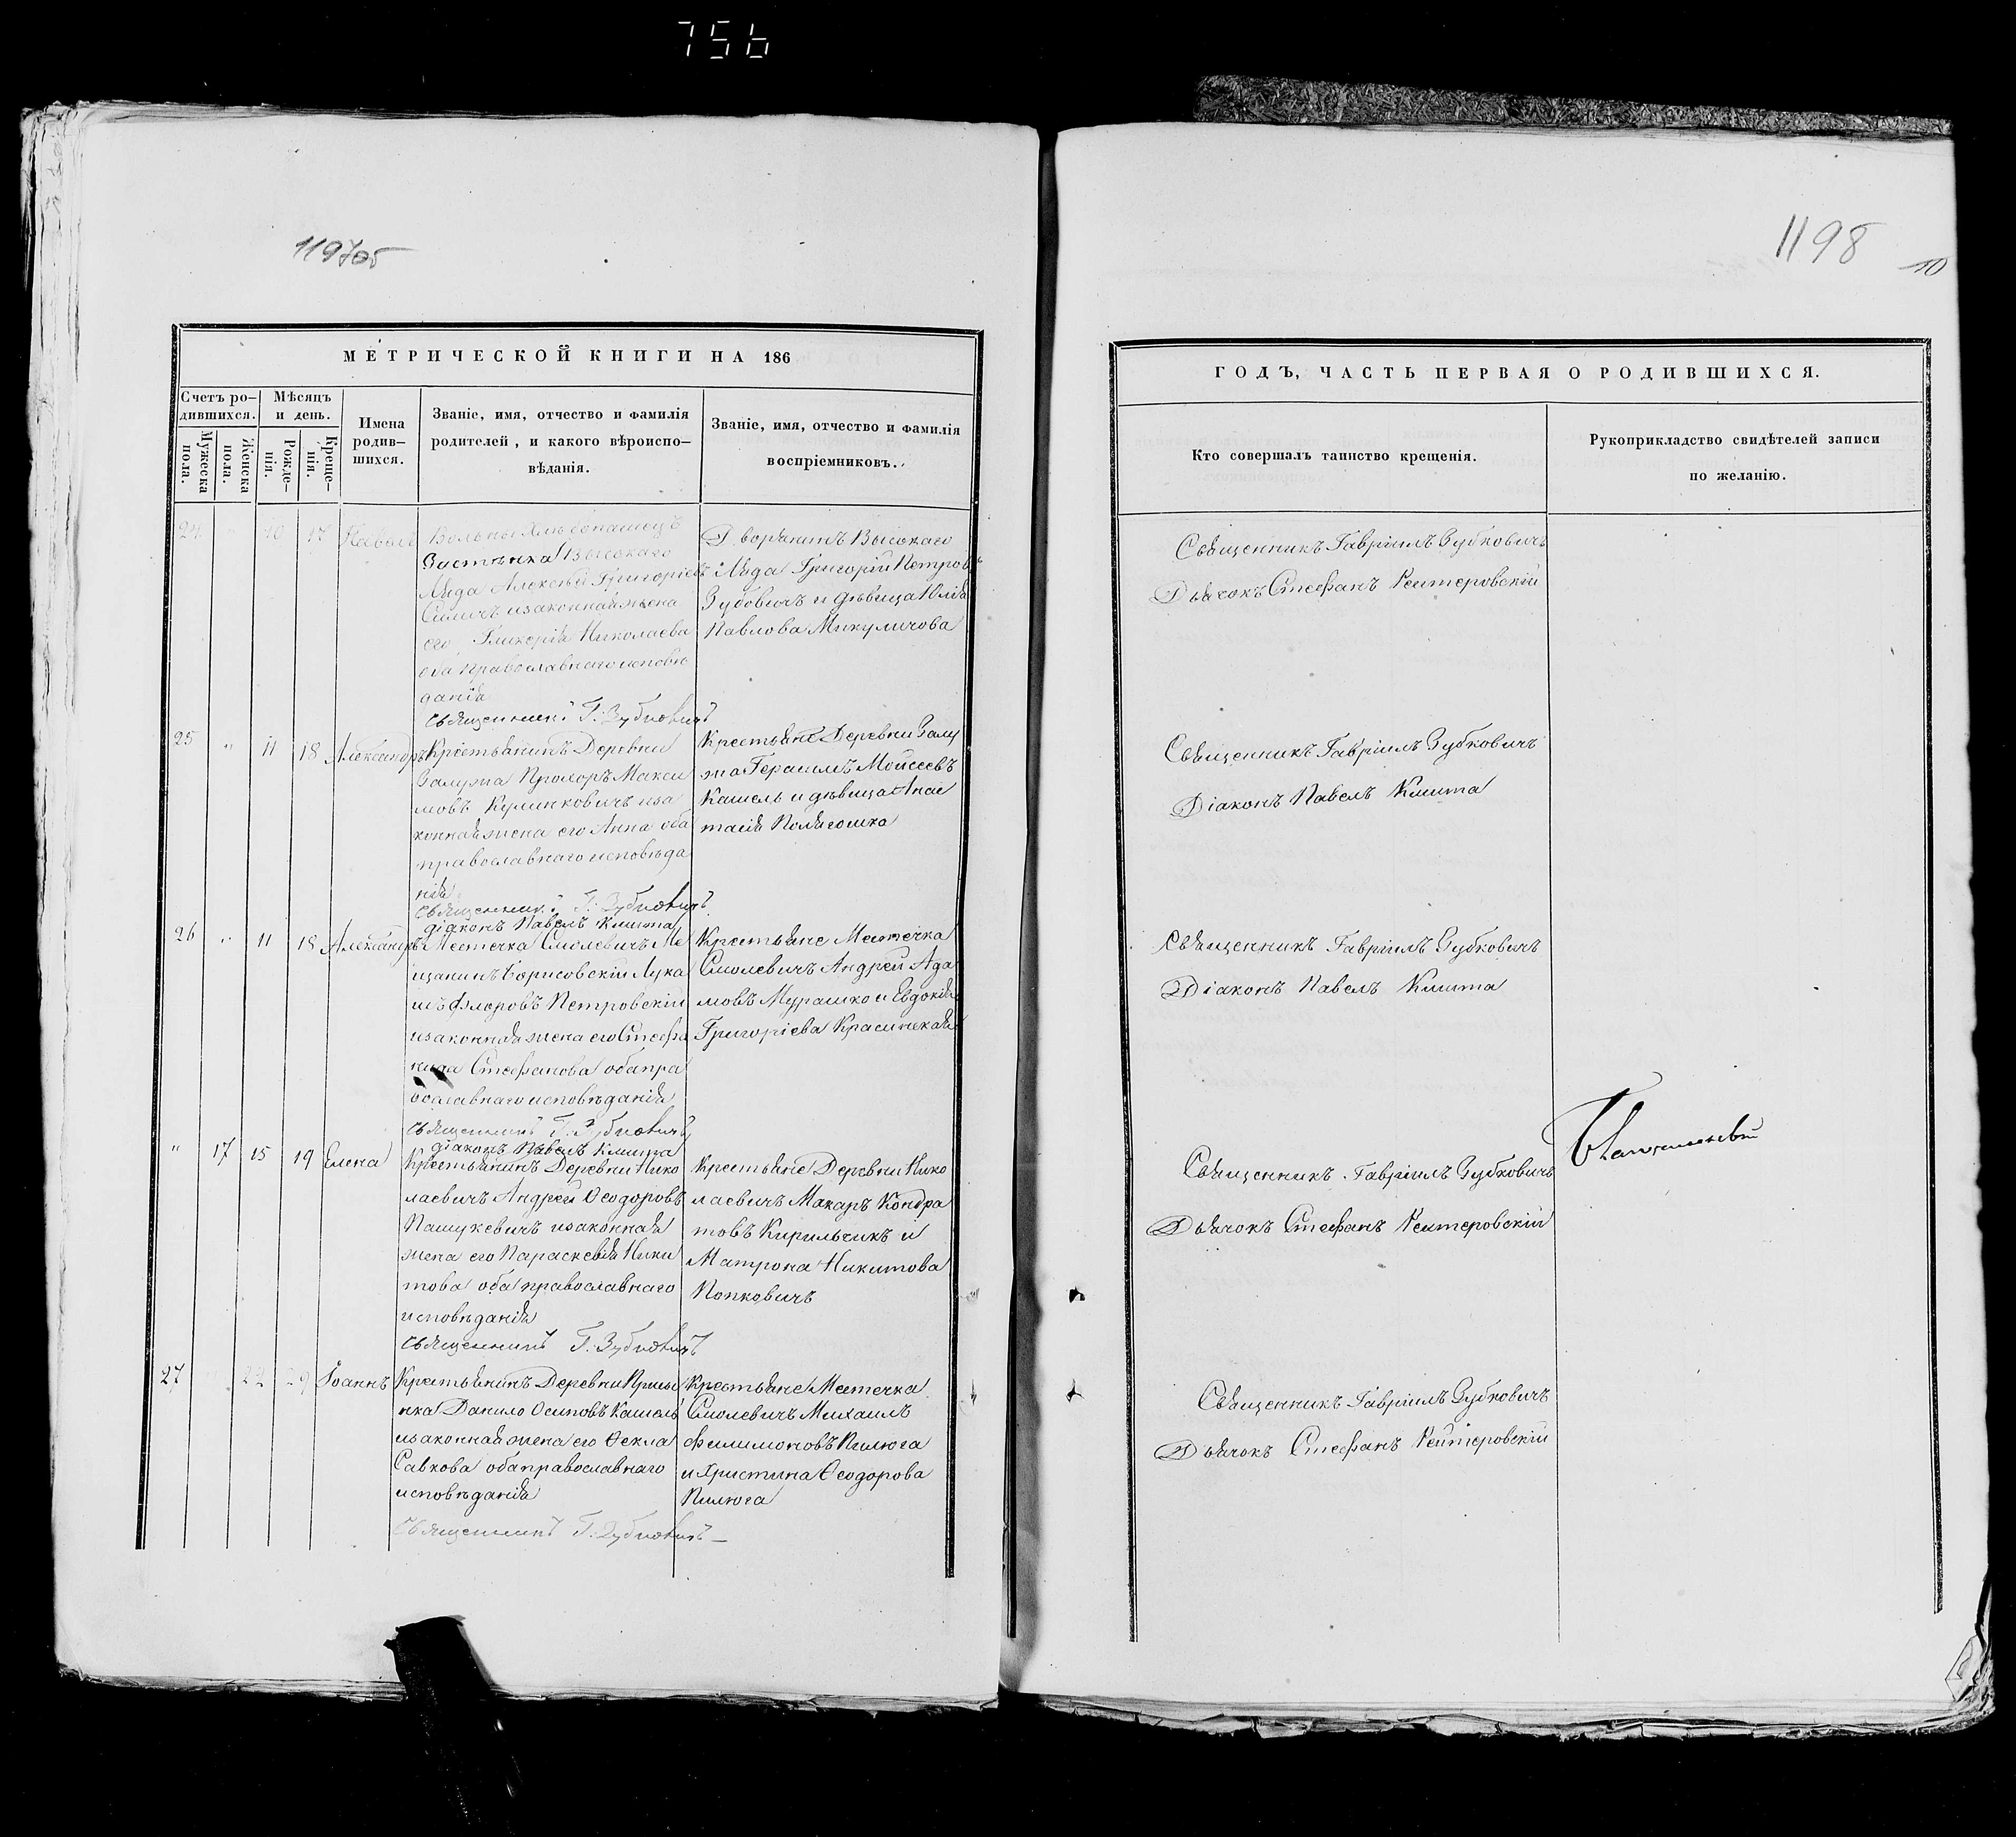 756
1197об
1198
10
МЕТРИЧЕСКОЙ КНИГИ НА 186
Счетъ ро-
дившихся.
Мѣсяцъ
и день.
Мужеска
пола.
Женска
пола.
Рожде-
нія.
Креще-
нія.
Имена
родив-
шихся.
Званіе, имя, отчество и фамилія
родителей, и какого вѣроиспо-
вѣданія.
Званіе, имя, отчество и фамилія
воспріемниковъ.
ГОДЪ, ЧАСТЬ ПЕРВАЯ О РОДИВШИХСЯ.
Кто совершалъ таинство крещенія.
Рукоприкладство свидѣтелей записи
по желанію.
24 " 10 17 Павелъ
Вольный хлѣбопашецъ
Застѣнка Высокаго
Ляда Алексѣй Григоріевъ
изаконная жена
его Гликерія Николаева
оба православнаго исповѣ
данія
священникъ Г: Зубковичъ
Дворянинъ Высокаго
Ляда Григорій Петровъ
Зубовичъ и дѣвица Юлія
Павлова Микуличова
Священникъ Гавріилъ Зубковичъ
Дьячокъ Стефанъ Рейтеровскій
25 " 11 18 Александръ
Крестьянинъ Деревни
Залужа Прохоръ Макси
мовъ Кулинковичъ иза
конная жена его Анна оба
православнаго исповѣда
нія
священникъ Г: Зубковичъ
діаконъ Павелъ Кмита
Крестьяне Деревни Залу
жа Герасимъ Мойсеевъ
Кашель и дѣвица Анас
тасія
Священникъ Гавріилъ Зубковичъ
Діаконъ Павелъ Кмита
26 " 11 18 Александръ
Местечка Смолевичъ Ме
щанинъ Борисовскій Лука
Петровскій
изаконная жена его Стефа
нида Стефанова оба пра
вославнаго исповѣданія
священникъ Г: Зубковичъ
діаконъ Павелъ Кмита
Крестьяне Местечка
Смолевичъ Андрей Ада
мовъ Мурашко и Евдокія
Григоріева Красинская
Священникъ Гавріилъ Зубковичъ
Діаконъ Павелъ Кмита
" 17 15 19 Елена
Крестьянинъ Деревни Нико
лаевичъ Андрей Ѳеодоровъ
Пашукевичъ изаконная
жена его Параскевія Ники
това оба православнаго
исповѣданія
священникъ Г. Зубковичъ
Крестьяне Деревни Нико
лаевичъ Макаръ Кондра
товъ Кирильчикъ и
Матрона Никитова
Попковичъ
Священникъ Гавріилъ Зубковичъ
Дьячокъ Стефанъ Рейтеровскій
27 22 29 Іоаннъ
Крестьянинъ Деревни
Данило Осиповъ Кашель
изаконная жена его Ѳекла
Савкова оба православнаго
исповѣданія
Священникъ Г: Зубковичъ
Крестьяне Местечка
Смолевичъ Михаилъ
Филимоновъ Пилюга
и Христина Ѳеодорова
Пилюга
Священникъ Гавріилъ Зубковичъ
Дьячокъ Стефанъ Рейтеровскій